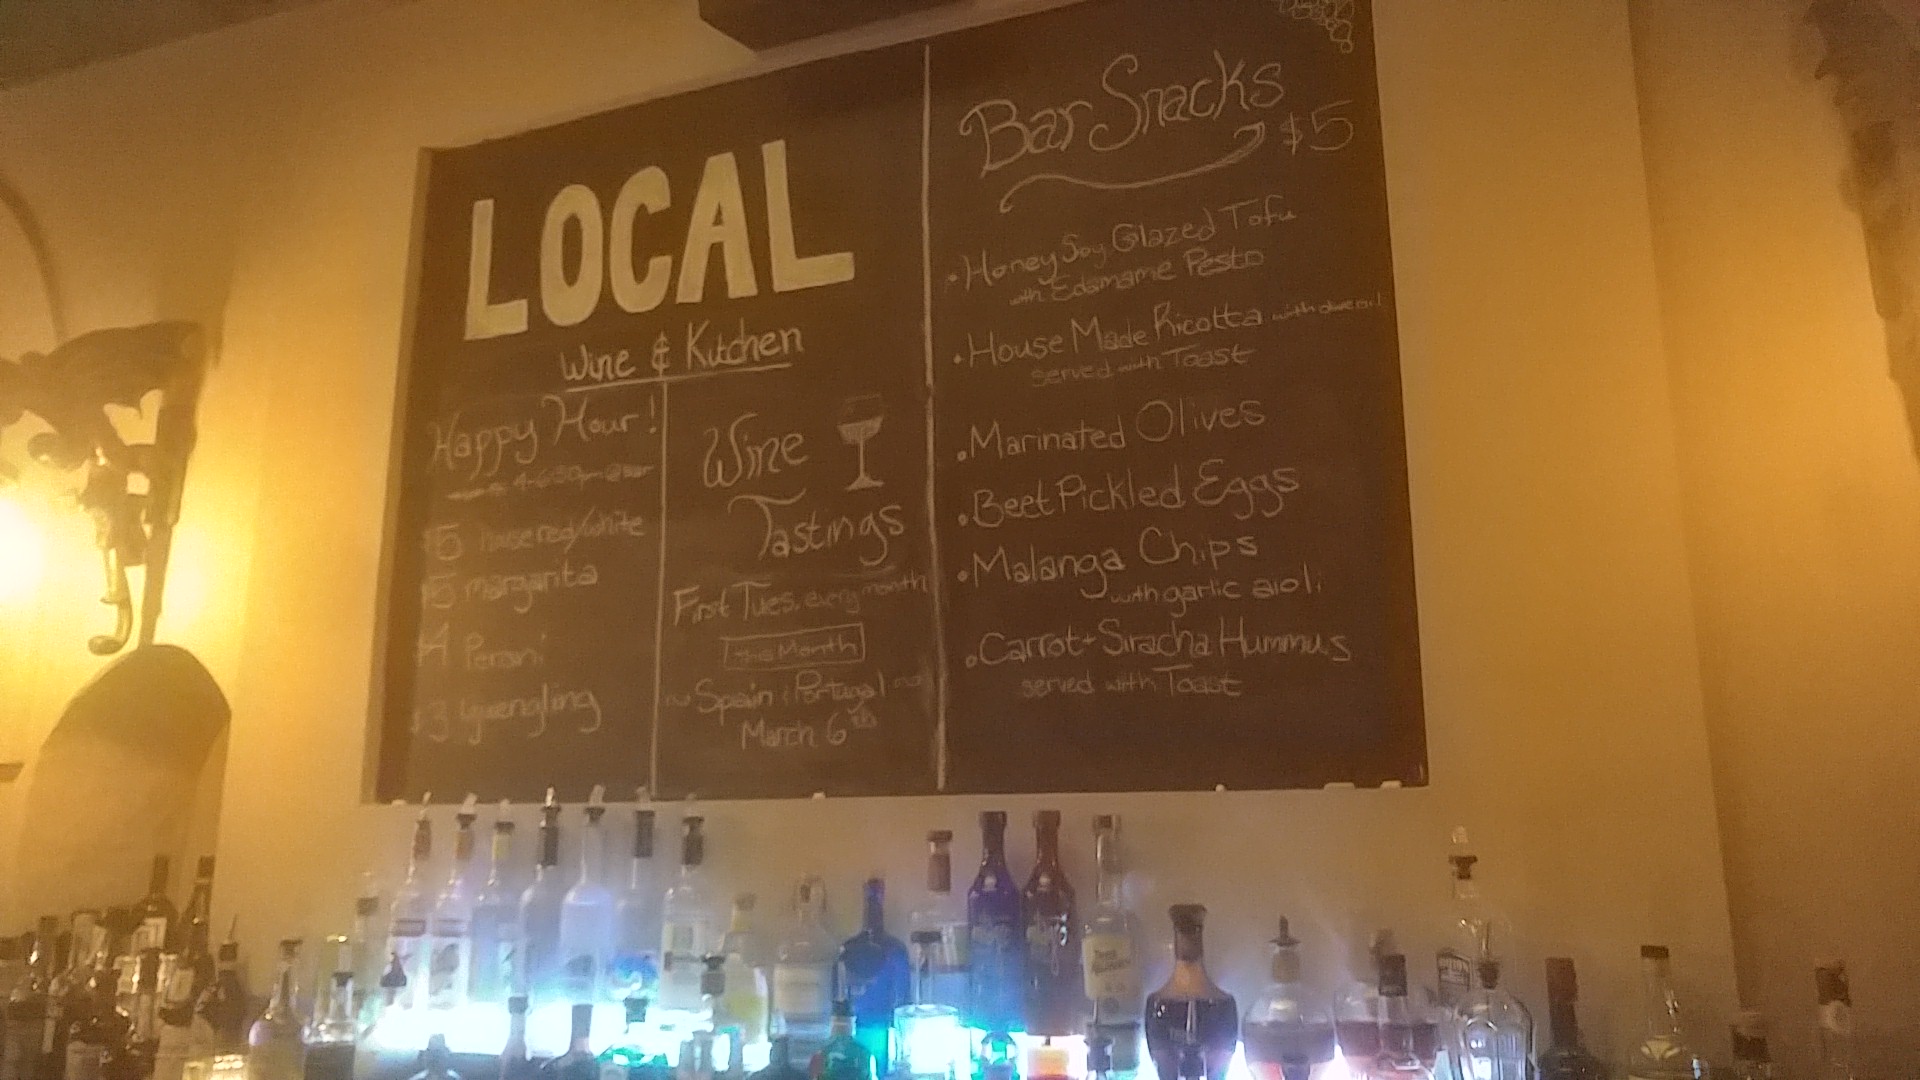 LOCAL
Wine & Kitchen
Happy Hour!
4-6:30pm @ bar
$5 house red/white
$5 margarita
$4 Peroni
$3 yuengling
Wine
Tastings
First Tues. every month
this Month
~ Spain & Portugal ~
March 6th
Bar Snacks
$5
• Honey Soy Glazed Tofu
with Edamame Pesto
• House Made Ricotta with olive oil
served with Toast
• Marinated Olives
• Beet Pickled Eggs
• Malanga Chips
with garlic aioli
• Carrot-Siracha Hummus
served with Toast